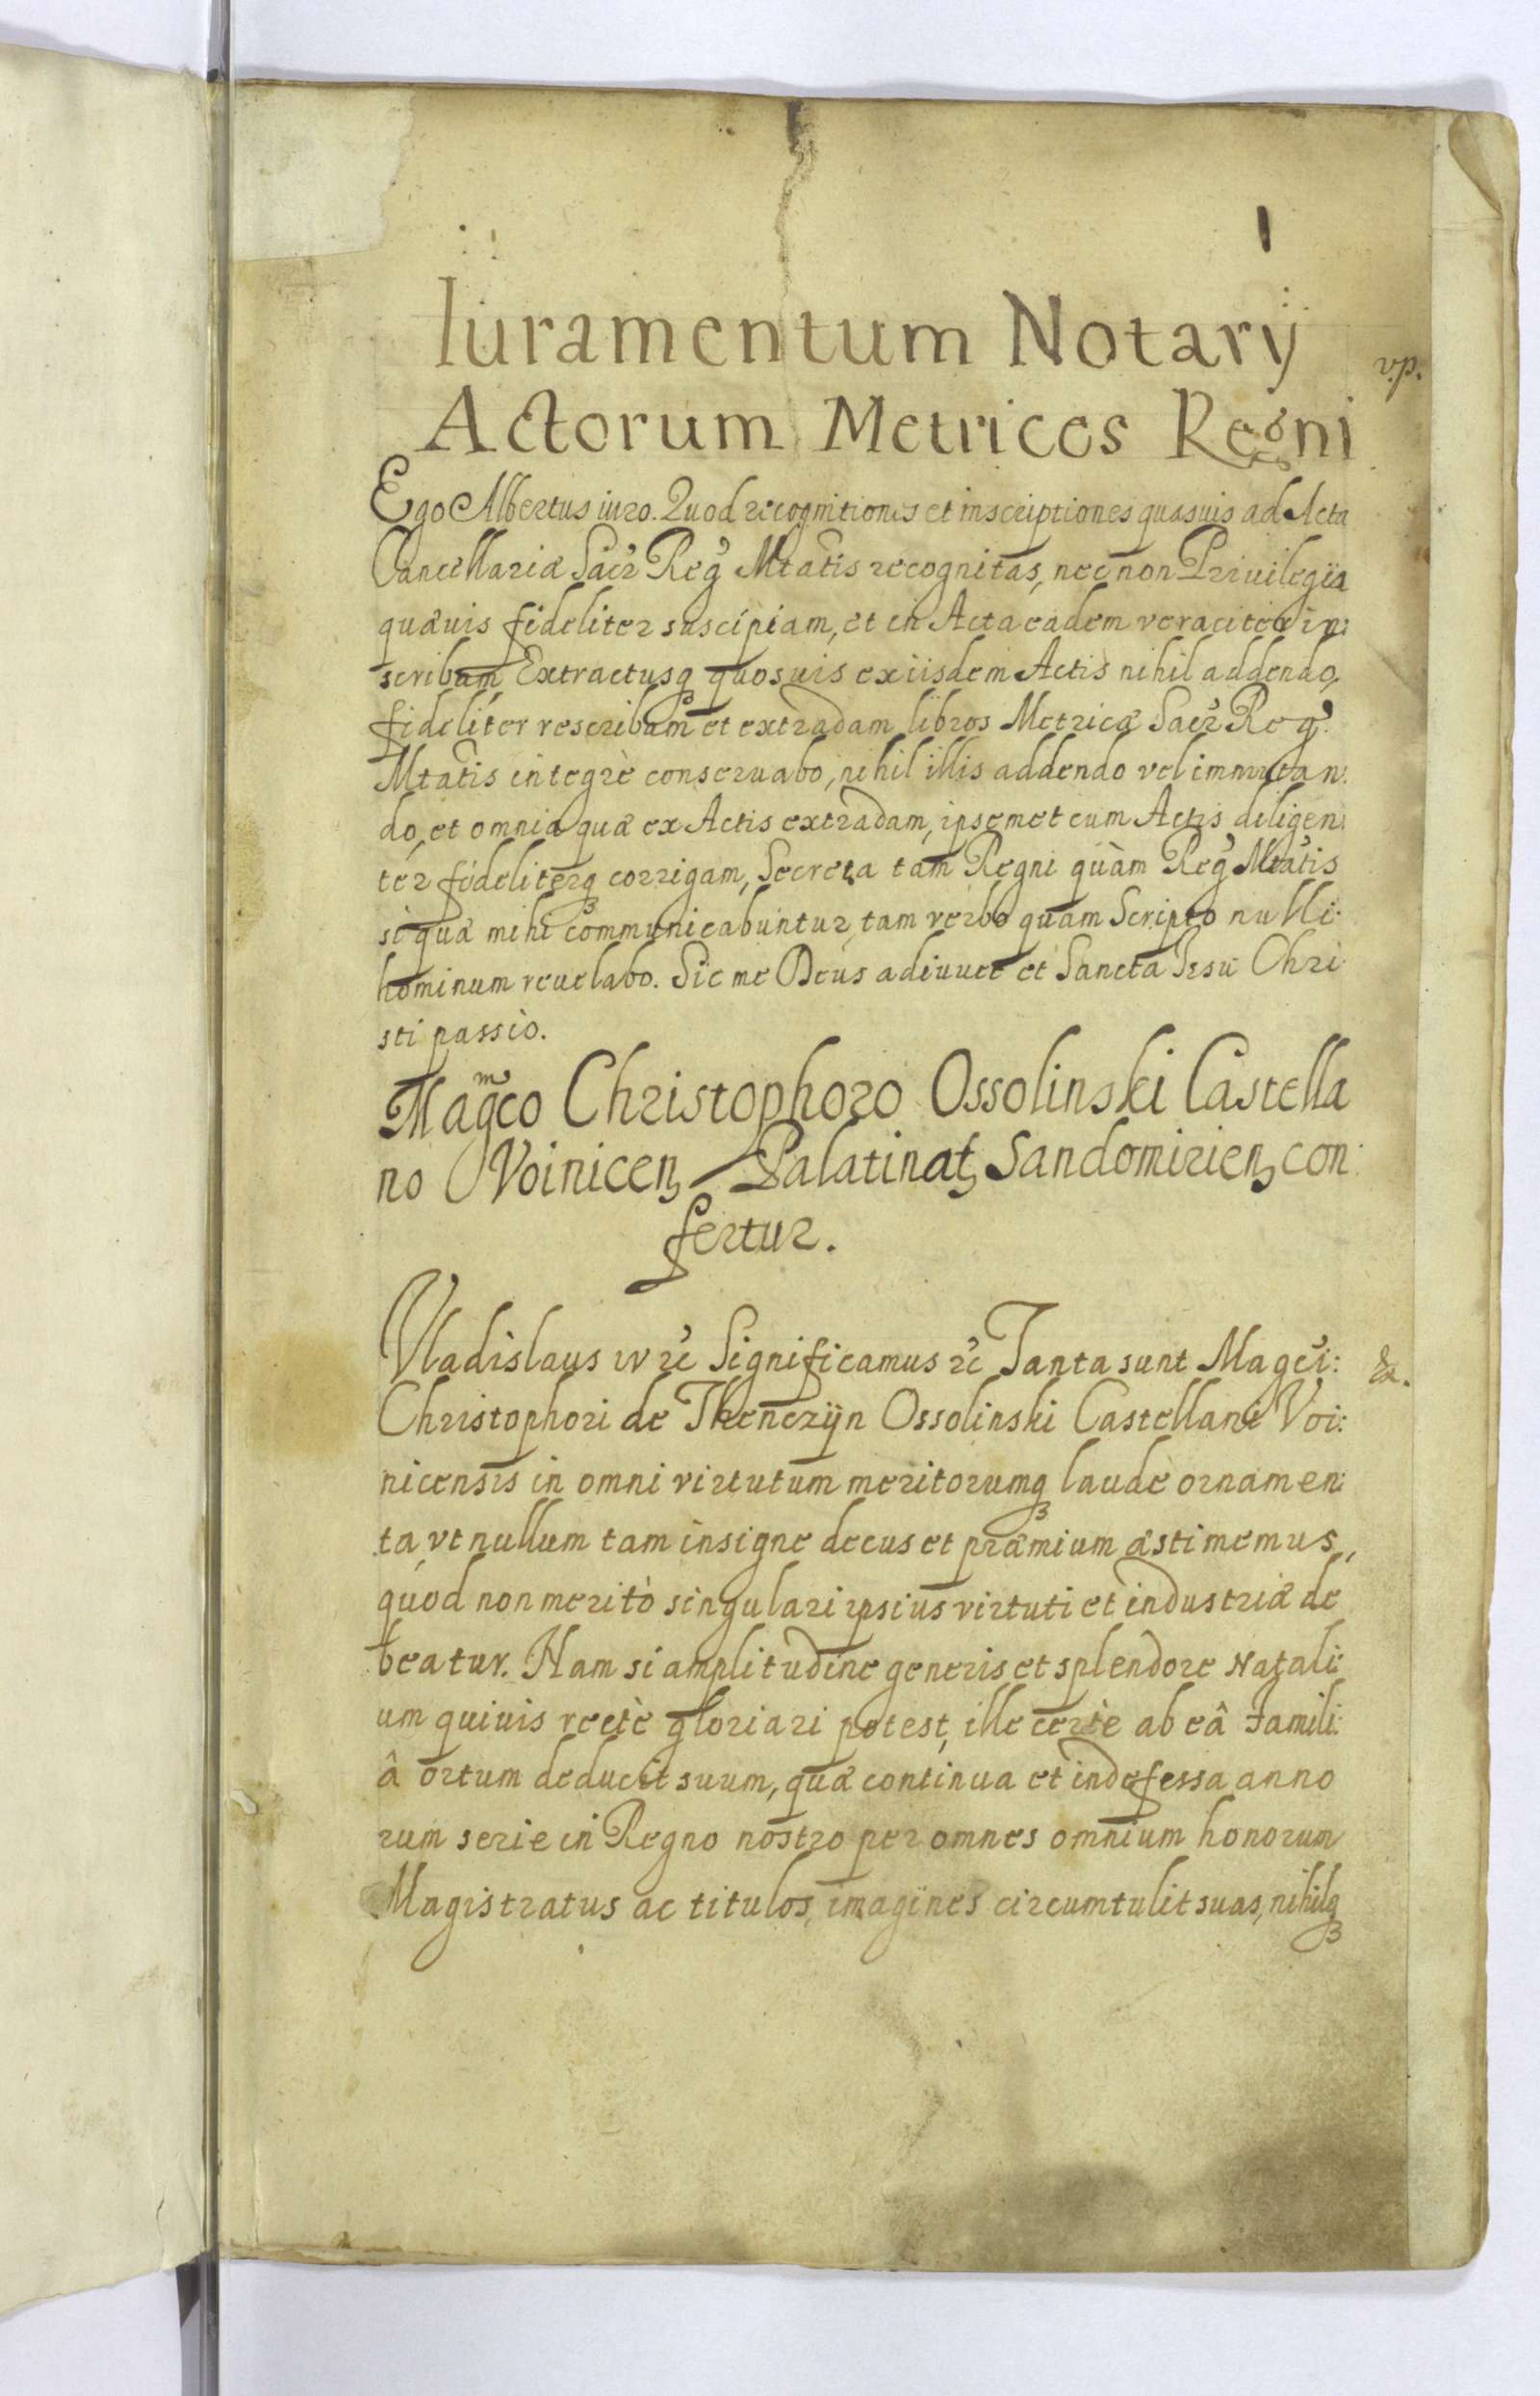 1
Iuramentum Notarij
v.p.
Actorum Metrices Regni
Ego Albertus iuro. Quod recognitiones et inscriptiones quasuis ad Acta
Cancellariæ Sacr Reg Mtatis recognitas, necnon Priuilegia
quæuis fideliter suscipiam, et in Acta eadem veraciter in:
scribam Extractusq quosuis ex iisdem Actis nihil addendo,
fideliter rescribam et extradam libros Metricæ Sacr Reg
Mtatis integrè conseruabo, nihil illis addendo vel immutan:
do, et omnia quæ ex Actis extradam, ipsemet cum Actis diligen:
ter fideliterq corrigam, Secreta tam Regni quàm Reg Mtatis
si quæ mihi communicabuntur, tam verbo quam Scripto nulli:
hominum reuelabo. Sic me Deus adiuuet et Sancta Iesu Chri
sti passio.
Magco Christophoro Ossolinski Castella
no Voinicen Palatinat Sandomirien con:
fertur.
Vladislaus IV &c Significamus &c Tanta sunt Magci: &.
Christophori de Thenczijn Ossolinski Castellani Voi:
nicensis in omni virtutum meritorumq laude ornamen:
ta, vt nullum tam insigne decus et præmium æstimemus,
quod non meritò singulari ipsius virtuti et industriæ de
beatur. Nam si amplitudine generis et splendore Natali:
um quiuis rectè gloriari potest, ille certè ab eâ Famili:
â ortum deducit suum, quæ continua et indefessa anno
rum serie in Regno nostro per omnes omnium honorum
Magistratus ac titulos, imagines circumtulit suas, nihilq